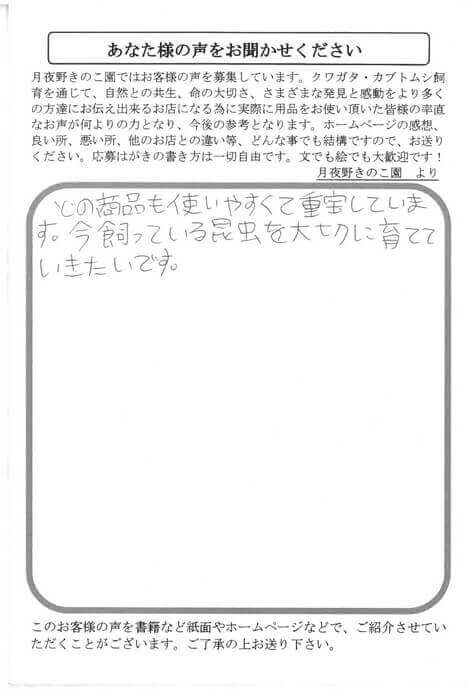 あなた様の声をお聞かせください
月夜野きのこ園ではお客様の声を募集しています。クワガタ・カブトムシ飼
育を通じて、自然との共生、命の大切さ、さまざまな発見と感動をより多く
の方達にお伝え出来るお店になる為に実際に用品をお使い頂いた皆様の率直
なお声が何よりの力となり、今後の参考となります。ホームページの感想、
良い所、悪い所、他のお店との違い等、どんな事でも結構ですので、お送り
ください。応募はがきの書き方は一切自由です。文でも絵でも大歓迎です！
月夜野きのこ園　より
どの商品も使いやすくて重宝していま
す。今飼っている昆虫を大切に育てて
いきたいです。
このお客様の声を書籍など紙面やホームページなどで、ご紹介させてい
ただくことがございます。ご了承の上お送り下さい。